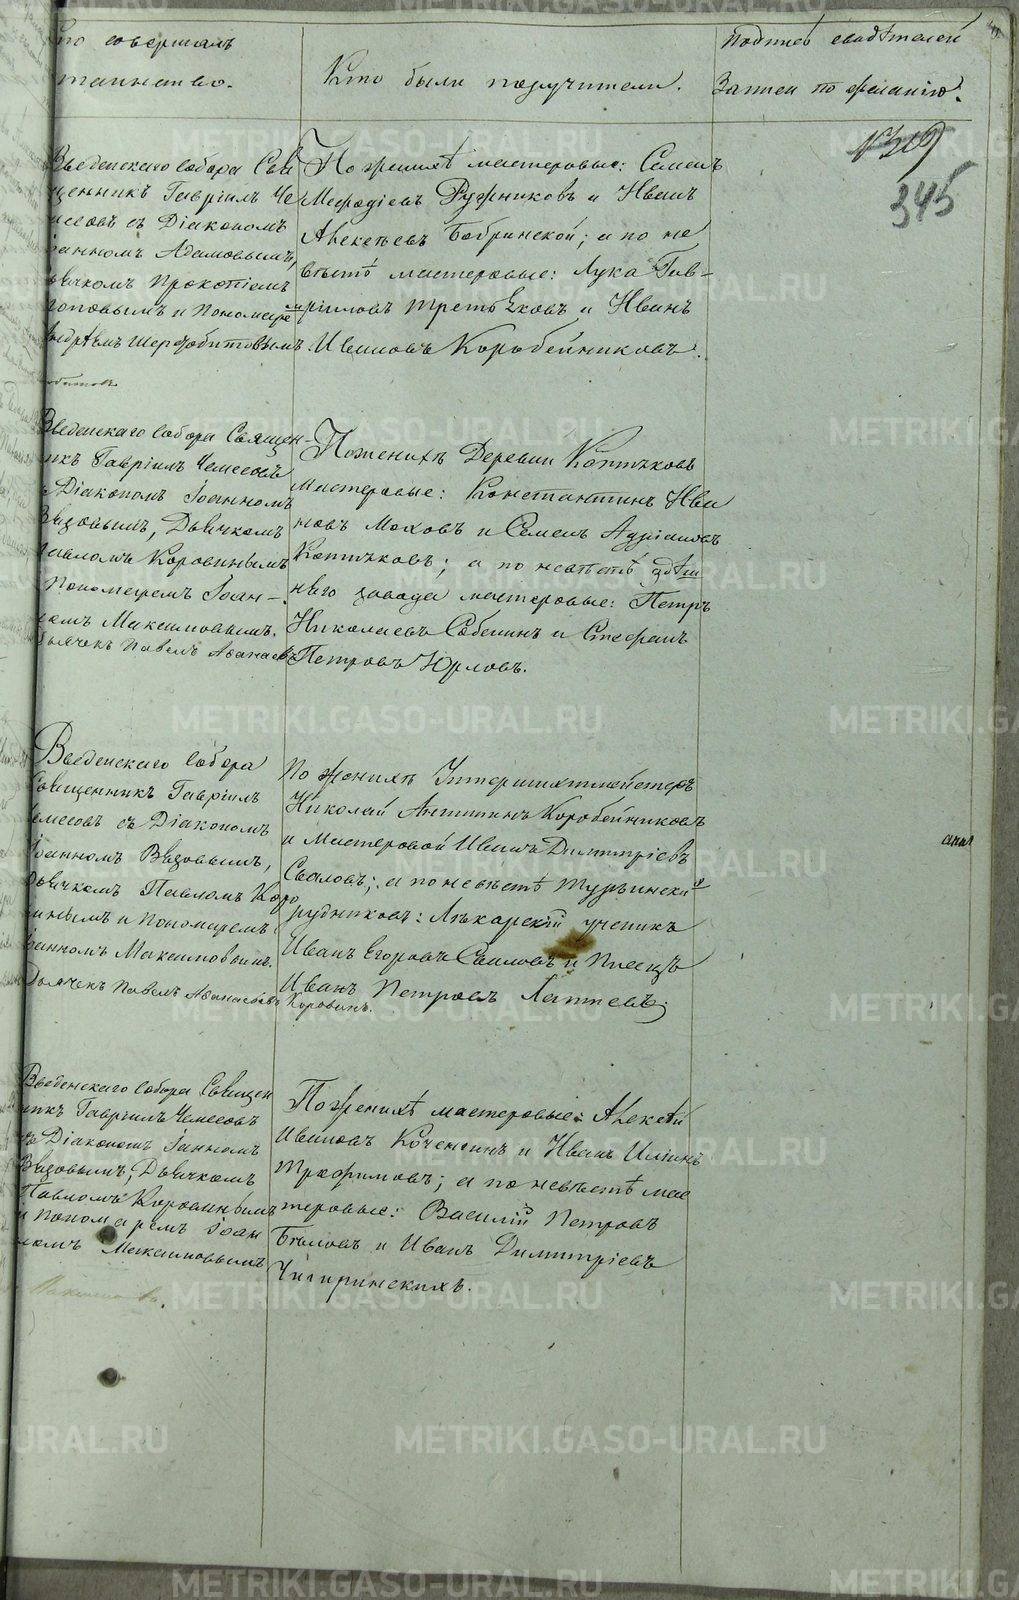 кто совершалъ
таинство.
Кто были поручители.
Подпись свидѣтелей
записи по желанію.
345
Введенскаго собора Свя
щенникъ Гавріилъ Че
месовъ съ Діакономъ
Іоанномъ Адамовымъ,
Дьячкомъ Прокопіемъ
Поповымъ и Пономаре
мъ
По женихѣ мастеровые: Семенъ
Меѳодіевъ Рудниковъ и Иванъ
Алексѣевъ Бобринской; а по не
вѣстѣ мастеровые: Лука Гав-
риловъ Третьяковъ и Иванъ
Ивановъ Коробейниковъ.
Введенскаго собора Священ-
никъ Гавріилъ Чемесовъ
съ Діакономъ Іоанномъ
Дьячкомъ
Павломъ Коровинымъ
и Пономаремъ Іоан-
номъ Максимовымъ.
Дьячекъ Павелъ Аѳанасьевъ
По женихѣ Деревни Коптяковъ
мастеровые: Константинъ Ива
новъ Моховъ и Семенъ Адріановъ
Коптяковъ; а по невѣстѣ здѣш
няго завода мастеровые: Петръ
Николаевъ Собенинъ и Стефанъ
Петровъ Юрловъ.
Введенскаго собора
Священникъ Гавріилъ
Чемесовъ съ Діакономъ
Іоанномъ
Дьячкомъ Павломъ Коро
винымъ и Пономаремъ
Іоанномъ Максимовымъ.
Дьячекъ Павелъ Аѳанасьевъ Коровинъ.
По женихѣ Унтершихтмейстеръ
Николай Антипинъ Коробейниковъ
и Мастеровой Иванъ Димитріевъ
а по невѣстѣ Турьинскихъ
рудниковъ: Лѣкарскій ученикъ
Иванъ Егоровъ и Писецъ
Иванъ Петровъ Лаптевъ;
Введенскаго собора Священ
никъ Гавріилъ Чемесовъ
съ Діакономъ Іоанномъ
Дьячкомъ
Павломъ Коровинымъ
и Пономаремъ Іоан
номъ Максимовымъ
По женихѣ мастеровые: Алексѣй
Ивановъ и Иванъ Ильинъ
Трофимовъ; а по невѣстѣ мас
теровые: Василій Петровъ
Бѣловъ и Иванъ Димитріевъ
Чигиринскихъ.
METRIKI.GASO-URAL.RU